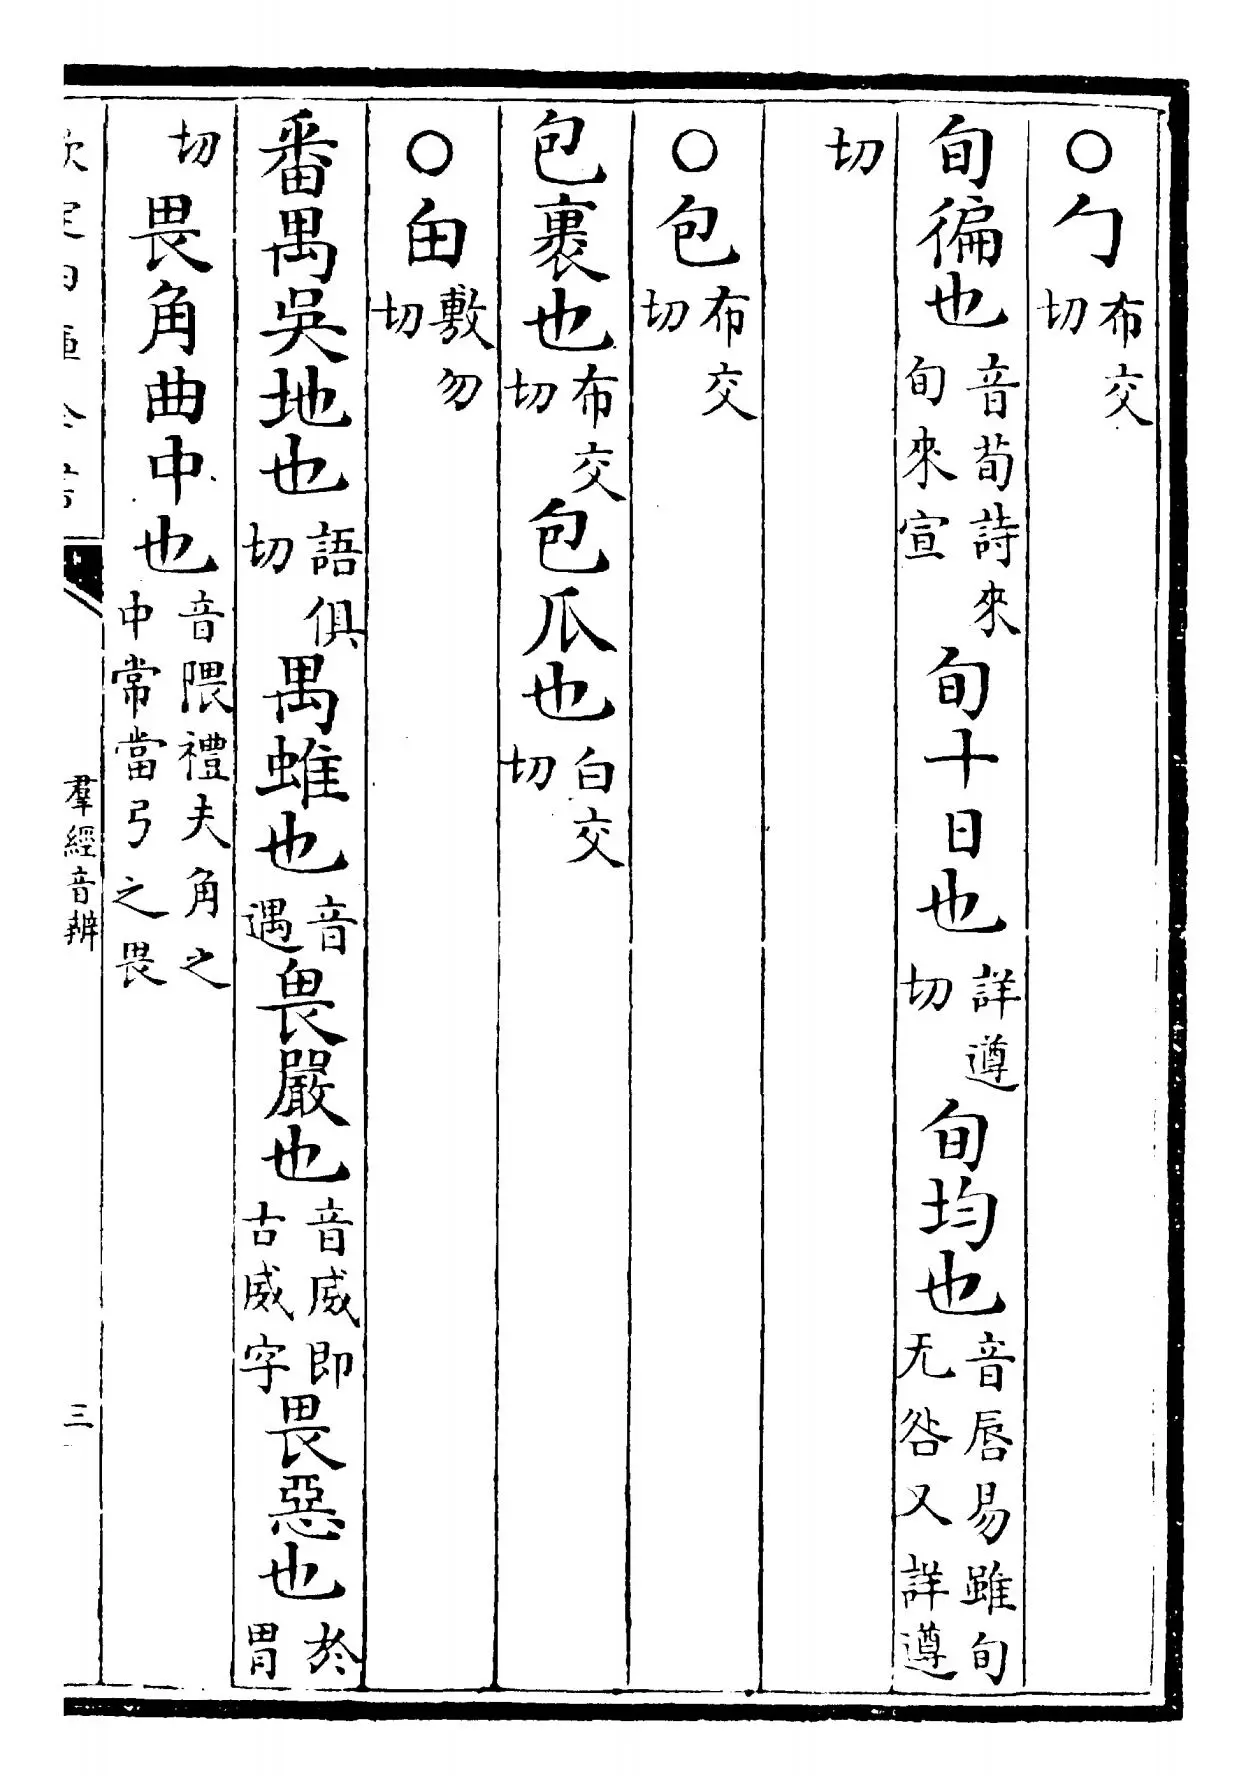 ○勹布交切
旬徧也音荀詩來旬來宣旬十日也詳遵切旬均也音唇易雖旬无咎又詳遵
切
○包布交切
包裹也布交切包瓜也白交切
○甶敷勿切
番禺吳地也語俱切禺蜼也音遇畏嚴也音威即古威字畏惡也於胃
切畏角曲中也音隈禮夫角之中常當弓之畏
欽定四庫全書
羣經音辨
三